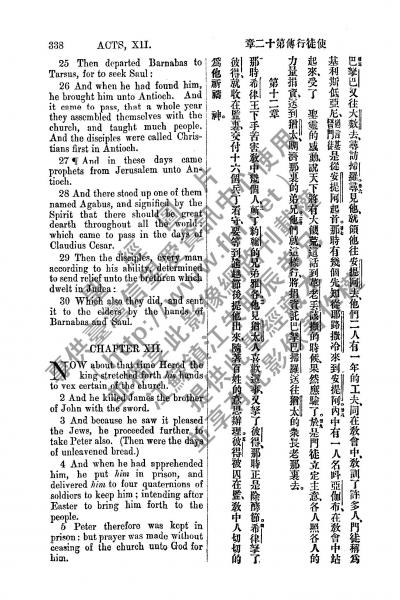 338 ACTS, XII.
使徒行傳第十二章
25 Then departed Barnabas to
Tarsus, for to seek Saul:
26 And when he had found him,
he brought him unto Antioch. And
it came to pass, that a whole year
they assembled themselves with the
church, and taught much people.
And the disciples were called Chris-
tians first in Antioch.
27 ¶ And in these days came
prophets from Jerusalem unto An-
tioch.
28 And there stood up one of them
named Agabus, and signified by the
Spirit that there should be great
dearth throughout all the world:
which came to pass in the days of
Claudius Cesar.
29 Then the disciples, every man
according to his ability, determined
to send relief unto the brethren which
dwelt in Judea:
30 Which also they did, and sent
it to the elders by the hands of
Barnabas and Saul.
CHAPTER XII.
NOW about that time Herod the
king stretched forth his hands
to vex certain of the church.
2 And he killed James the brother
of John with the sword.
3 And because he saw it pleased
the Jews, he proceeded further to
take Peter also. (Then were the days
of unleavened bread.)
4 And when he had apprehended
him, he put him in prison, and
delivered him to four quaternions of
soldiers to keep him; intending after
Easter to bring him forth to the
people.
5 Peter therefore was kept in
prison: but prayer was made without
ceasing of the church unto God for
him.
巴拏巴又往大數去、尋訪掃羅、尋見他、就領他往安提阿去、他們二人有一年的工夫、同在教會中、教訓了許多人、門徒稱爲
基利斯低亞尼是從安提阿起首、那時有幾個先知從耶路撒冷來到安提阿、內中有一人、名叫亞伽布、在教會中站
起來、受了 聖靈的感動、說天下將有大饑荒、這話到革老丟該撒的時候、果然應驗了、於是門徒立定主意、各人照各人的
力量、捐資送到猶太、賙濟那裏的弟兄、他們就這樣行、將捐資託巴拏巴掃羅、送往猶太的衆長老那裏去、
第十二章
那時希律王下手苦害教中幾個人、殺了約翰的兄弟雅各、見猶太人喜歡這事、又拏了彼得、那時正是除酵節、希律拏了
彼得、就收在監裏、交付十六個兵丁看守、要等到逾越節後、提他出來、隨著百姓的意思辦理、彼得被囚在監、教中人切切的
爲他祈禱 神、